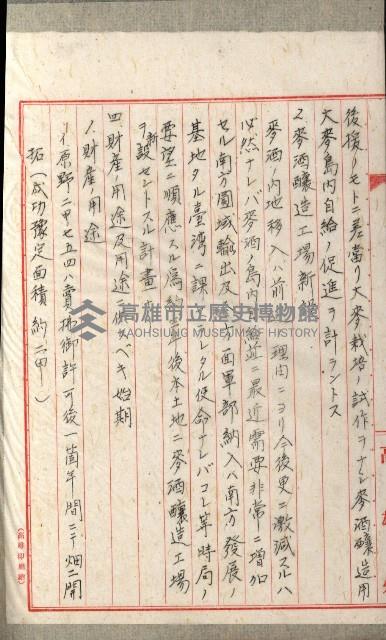 後援ノモトニ差當リ大麥栽培ノ試作ヲナシ麥酒釀造用
大麥島内自給ノ促進ヲ計ラントス
2.麥酒釀造工場新設
麥酒ノ内地移入ハ前 理由ニヨリ今後更ニ激減スルハ
必然ナレバ麥酒ノ島内 並ニ最近需要非常ニ增加
セル南方圈域輸出及 方面軍部納入ハ南方發展ノ
基地タル臺灣ニ課 レタル使命ナレバコレ等時局ノ
要望ニ順應スル為約 年後本土地ニ麥酒釀造工場
ヲ新設セントスル計畫
四財産ノ用途及用途ニ供 ベキ始期
1.財産ノ用途
イ原野二甲七五四八賣拂御許可後一箇年間ニテ畑ニ開
拓(成功豫定面積約二甲)
高雄市立歷史博物館
KAOHSIUNG MUSEUM OF HISTORY
(高雄印刷納)